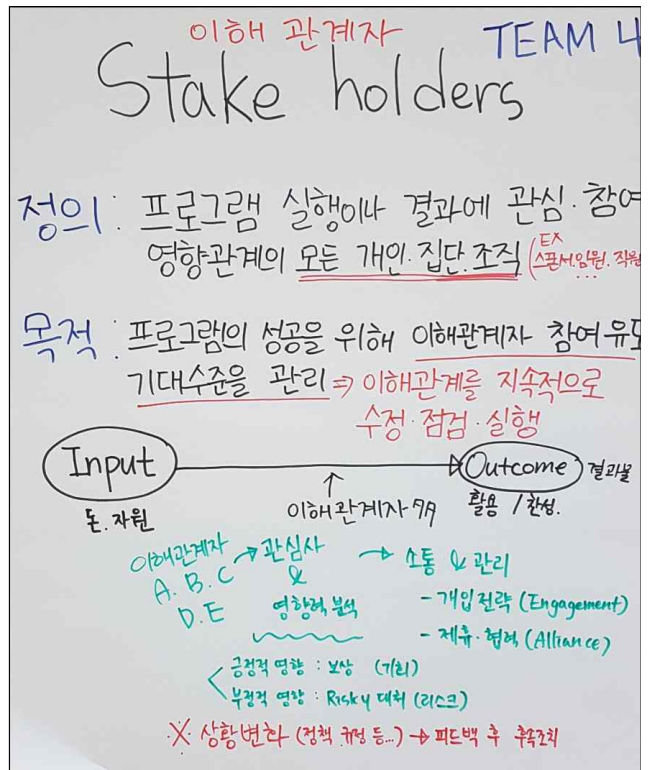 이해 관계자
TEAM 4
Stake holders
정의 : 프로그램 실행이나 결과에 관심·참여
영향관계의 모든 개인·집단·조직 (EX 스폰서, 임원, 직원 ...
목적 : 프로그램의 성공을 위해 이해관계자 참여유도
기대수준을 관리 ⇒ 이해관계를 지속적으로
수정·점검·실행
Input → Outcome 결과물
돈. 자원
↑
이해관계자
활용 / 찬성.
이해관계자 → 관심사 → 소통 & 관리
A. B. C & - 개입전략 (Engagement)
D. E 영향력 분석 - 제휴·협력 (Alliance)
< 긍정적 영향 : 보상 (기회)
부정적 영향 : Risky 대처 (리스크)
※ 상황변화 (정책 규정 등...) → 피드백 후 후속조치